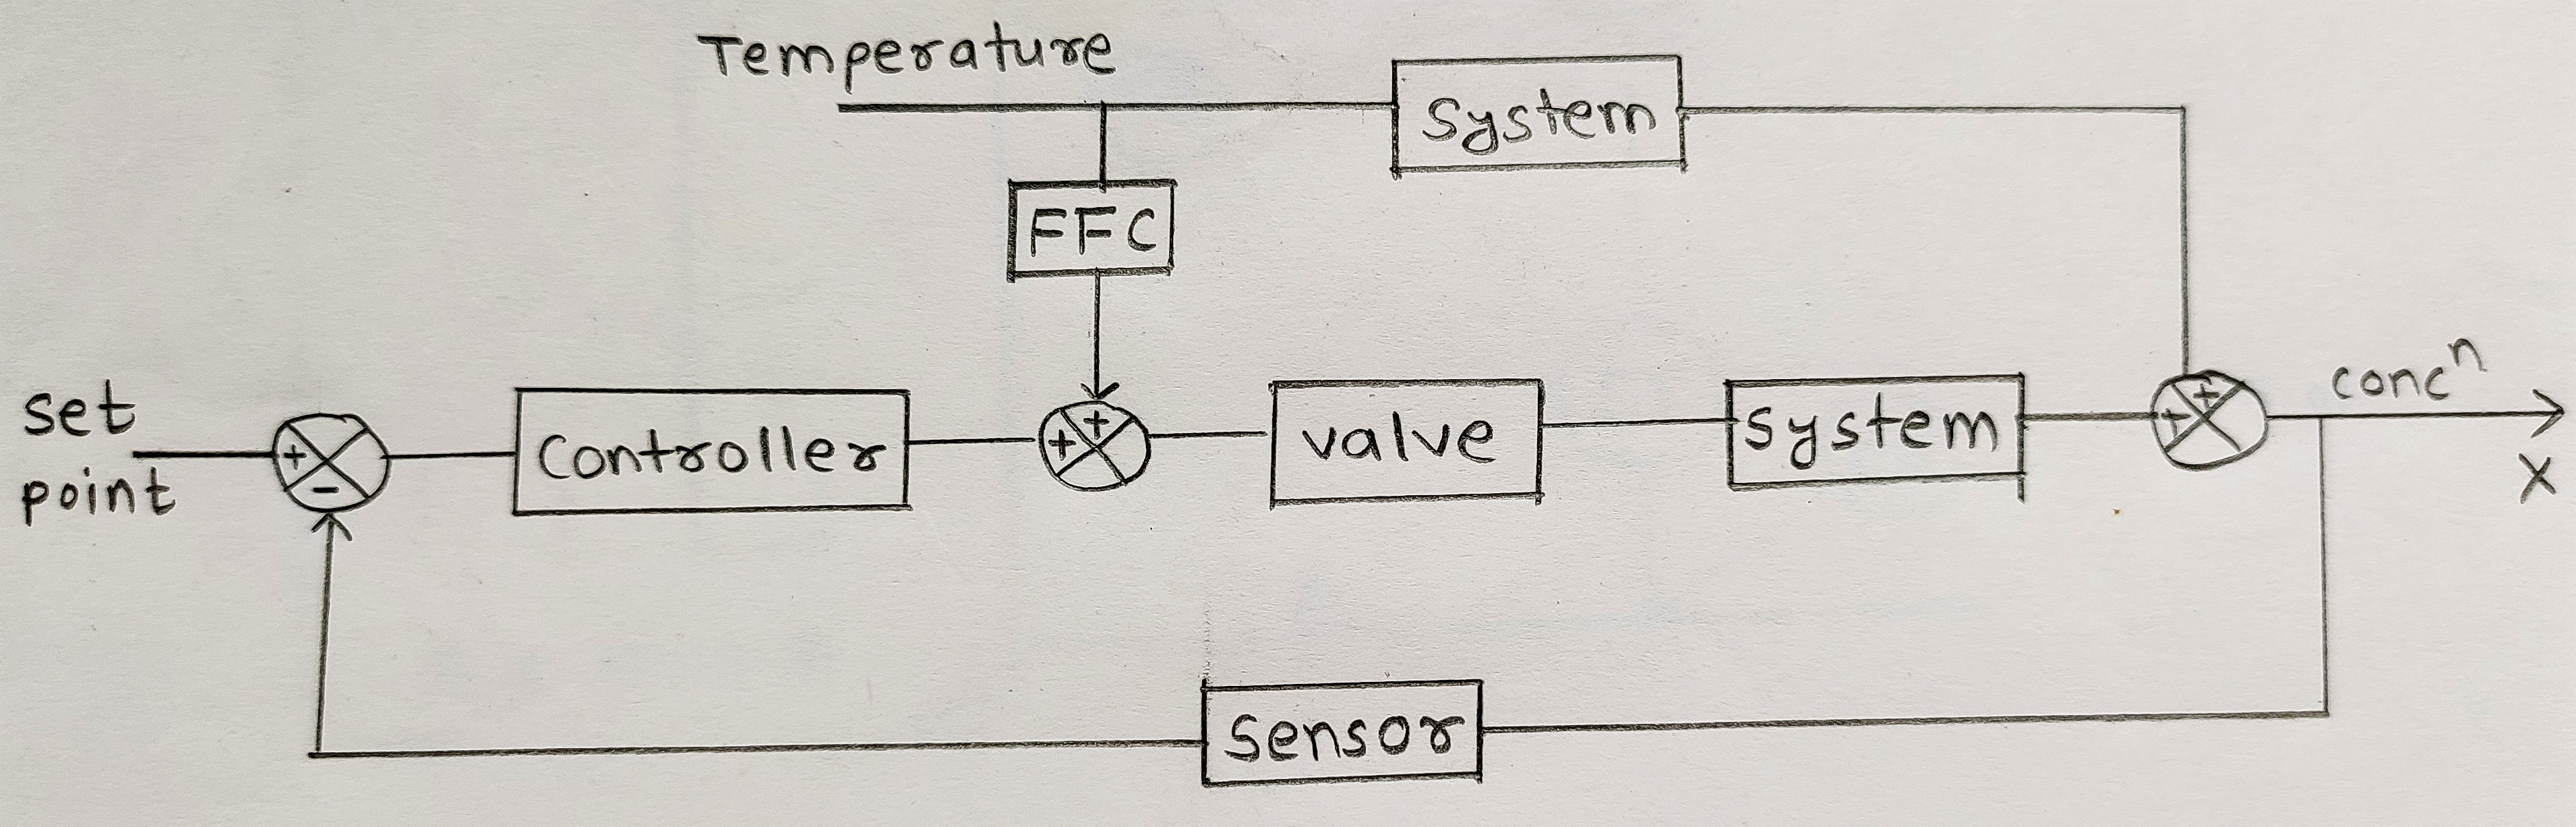 Temperature
System
FFC
set
point
+
-
Controller
+
+
valve
System
+
+
concⁿ
X
Sensor